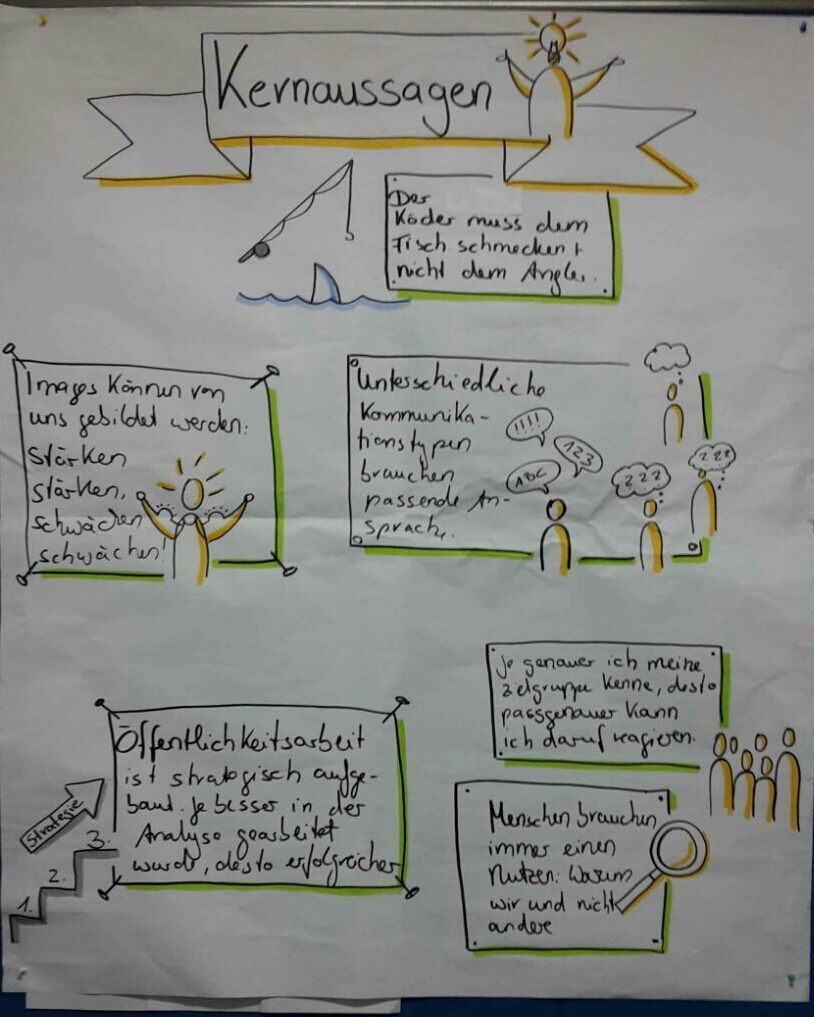 Kernaussagen
Der
Köder muss dem
Fisch schmecken +
nicht dem Angler.
Images können von
uns gebildet werden:
Stärken
stärken,
schwächen
schwächen!
Unterschiedliche
Kommunika-
tionstypen
brauchen
passende An-
sprache.
!!!!
123
ABC
???
???
Je genauer ich meine
Zielgruppe kenne, desto
passgenauer kann
ich darauf reagieren.
Öffentlichkeitsarbeit
ist strategisch aufge-
baut. Je besser in der
Analyse gearbeitet
wurde, desto erfolgreicher
Strategie
3.
2.
1.
Menschen brauchen
immer einen
Nutzen: Warum
wir und nicht
andere